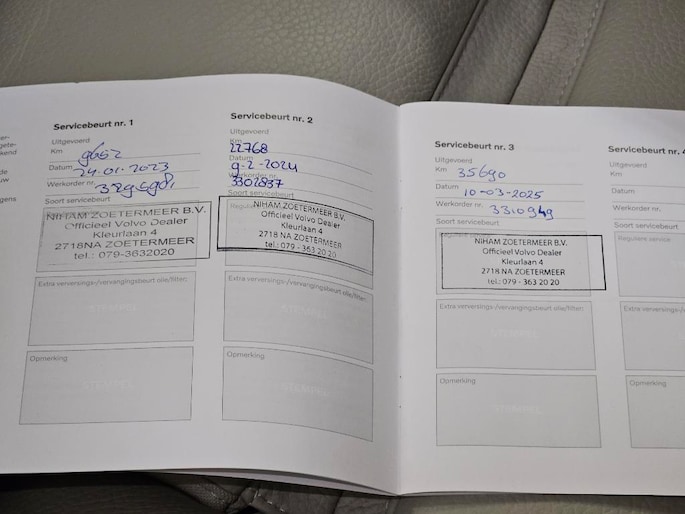 Servicebeurt nr. 1
Uitgevoerd
Km 9652
Datum 24-01-2023
Werkorder nr.
Soort servicebeurt
NIHAM ZOETERMEER B.V.
Officieel Volvo Dealer
Kleurlaan 4
2718NA ZOETERMEER
tel.: 079-3632020
Extra verversings-/vervangingsbeurt olie/filter:
STEMPEL
Opmerking
STEMPEL
Servicebeurt nr. 2
Uitgevoerd
Km 22768
Datum 9-2-2024
Werkorder nr. 3302837
Soort servicebeurt
NIHAM ZOETERMEER B.V.
Officieel Volvo Dealer
Kleurlaan 4
2718 NA ZOETERMEER
tel.: 079 - 363 20 20
Extra verversings-/vervangingsbeurt olie/filter:
STEMPEL
Opmerking
STEMPEL
Servicebeurt nr. 3
Uitgevoerd
Km 35690
Datum 10-03-2025
Werkorder nr. 3310949
Soort servicebeurt
NIHAM ZOETERMEER B.V.
Officieel Volvo Dealer
Kleurlaan 4
2718 NA ZOETERMEER
tel.: 079 - 363 20 20
Extra verversings-/vervangingsbeurt olie/filter:
STEMPEL
Opmerking
STEMPEL
Servicebeurt nr. 4
Uitgevoerd
Km
Datum
Werkorder nr.
Soort servicebeurt
Reguliere service
Extra verversings-/ver
Opmerking